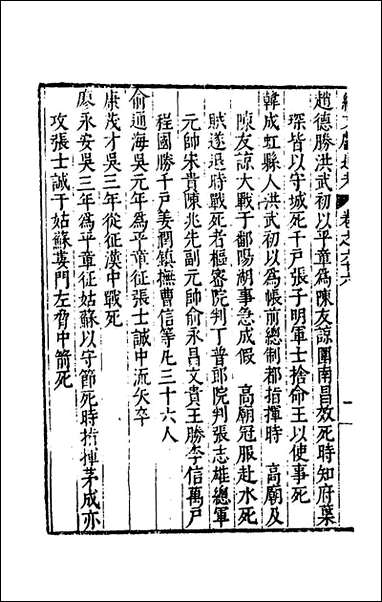 續文獻通考 卷之六十六 一
趙德勝洪武初以平章爲陳友諒圍南昌效死時知府葉
琛皆以守城死千戸張子明軍士捨命王以使事死
韓成虹縣人洪武初以爲帳前總制都指揮時 高廟及
陳友諒大戰于鄱陽湖事急成假 高廟冠服赴水死
賊遂退時戰死者樞密院判丁普郎院判張志雄總軍
元帥朱貴陳兆先副元帥俞永昌文貴王勝李信萬戸
程國勝千戸姜潤鎮撫曹信等凡三十六人
俞通海吳元年爲平章征張士誠中流矢卒
康茂才吳三年從征漢中戰死
廖永安吳三年爲平章征姑蘇以守節死時指揮茅成亦
攻張士誠于姑蘇婁門左脅中箭死